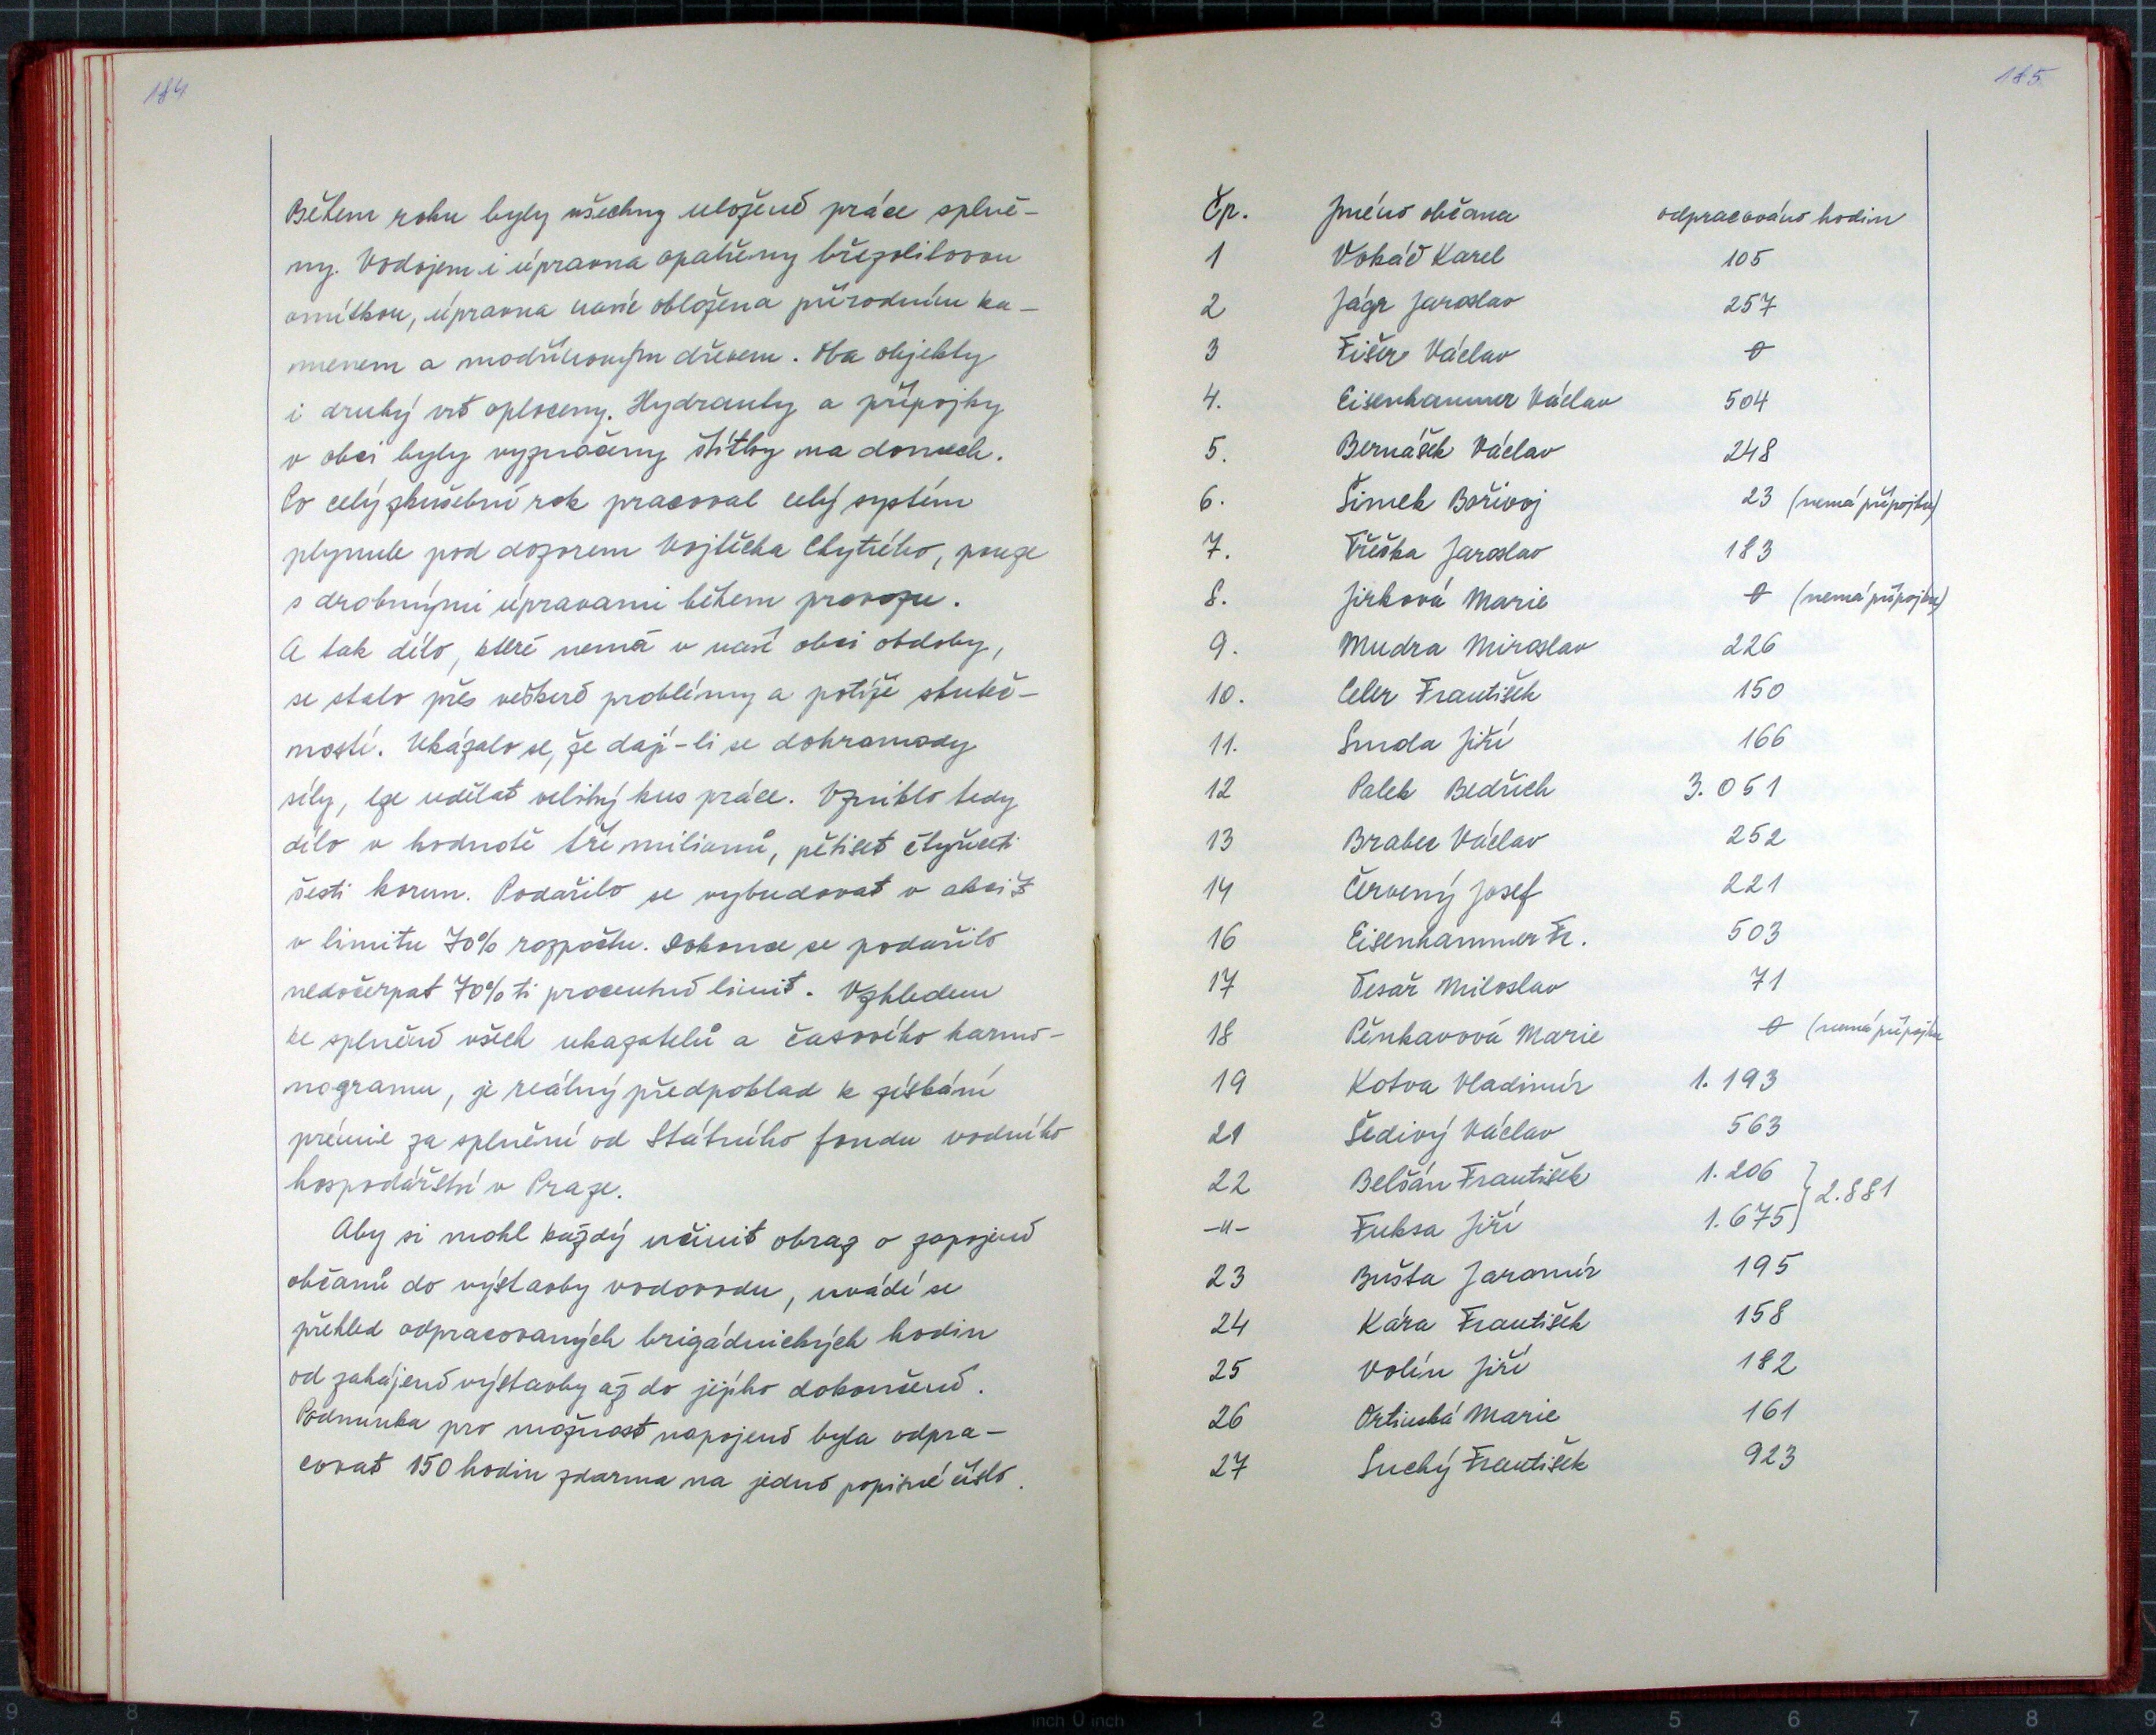 184
Během roku byly všechny uložené práce splně-
ny. Vodojem i úpravna opatřeny břizolitovou
omítkou, úpravna navíc obložena přírodním ka-
menem a modřínovým dřevem. Oba objekty
i druhý vrt oploceny. Hydranty a přípojky
v obci byly vyznačeny štítky na domech.
Po celý zkušební rok pracoval celý systém
plynule pod dozorem Vojtěcha Chytrého, pouze
s drobnými úpravami během provozu.
A tak dílo, které nemá v naší obci obdoby,
se stalo přes veškeré problémy a potíže skuteč-
ností. Ukázalo se, že dají-li se dohromady
síly, lze udělat veliký kus práce. Vzniklo tedy
dílo v hodnotě tří milionů, pětiset čtyřiceti
šesti korun. Podařilo se vybudovat v akci Z
v limitu 70% rozpočtu. Dokonce se podařilo
nedočerpat 70% ti procentní limit. Vzhledem
ke splnění všech ukazatelů a časového harmo-
nogramu, je reálný předpoklad k získání
prémie za splnění od Státního fondu vodního
hospodářství v Praze.
Aby si mohl každý učinit obraz o zapojení
občanů do výstavby vodovodu, uvádí se
přehled odpracovaných brigádnických hodin
od zahájení výstavby až do jejího dokončení.
Podmínka pro možnost napojení byla odpra-
covat 150 hodin zdarma na jedno popisné číslo.
185.
Čp. Jméno občana odpracováno hodin
1 Vokáč Karel 105
2 Jágr Jaroslav 257
3 Fišer Václav 0
4. Eisenhammer Václav 504
5. Bernášek Václav 248
6. Šimek Bořivoj 23 (nemá přípojku)
7. Třeška Jaroslav 183
8. Jirková Marie 0 (nemá přípojku)
9. Mudra Miroslav 226
10. Celer František 150
11. Smola Jiří 166
12 Palek Bedřich 3.051
13 Brabec Václav 252
14 Červený Josef 221
16 Eisenhammer Fr. 503
17 Tesař Miloslav 71
18 Pěnkavová Marie 0 (nemá přípojku
19 Kotva Vladimír 1.193
21 Šedivý Václav 563
22 Belšán František 1.206 } 2.881
-"- Fuksa Jiří 1.675
23 Bušta Jaromír 195
24 Kára František 158
25 Volín Jiří 182
26 Ortinská Marie 161
27 Suchý František 923